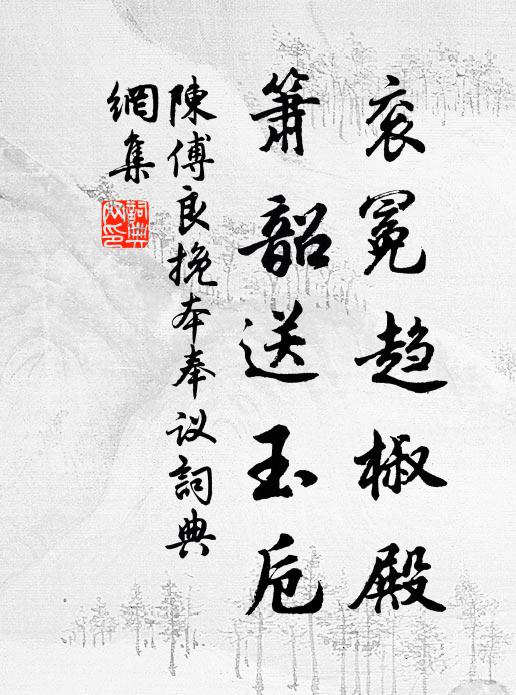 衮冕趋椒殿
箫韶送玉卮
陳傅良挽本奉议詞典
網集